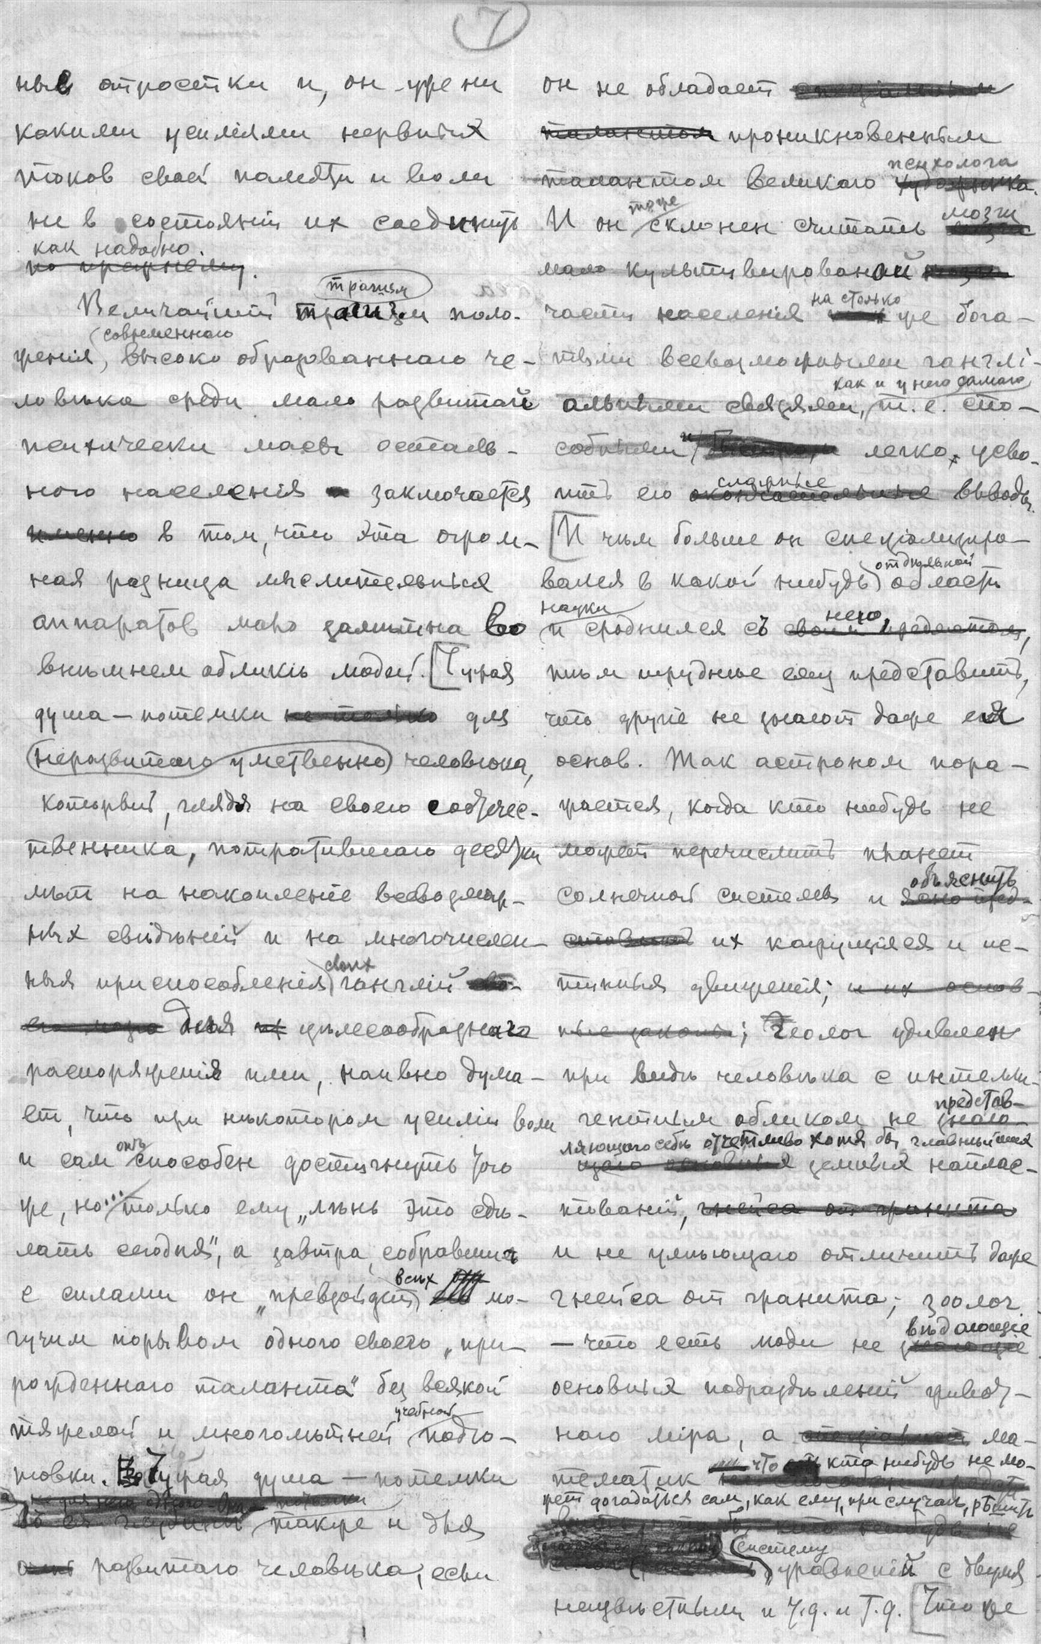 7
ные отростки и, он уже ни
какими усиліями нервных
токов своей памяти и воли
не в состояніи их соединить
как надобно.
по прежнему.
Величайшій трагизм поло-
женія, современнаго высоко образованнаго че-
ловѣка среди мало развитой
психически массы осталь-
ного населенія заключается
именно в том, что эта огром-
ная разница мыслительных
аппаратов мало замѣтна во
внѣшнем обликѣ людей. [Чужая
душа — потемки не только для
(неразвитого умственно) человѣка,
который, глядя на своего соотечес-
твенника, потратившаго десятки
лѣт на накопленіе всевозмож-
ных свѣдѣній и на многочислен-
ныя приспособленія своих ганглій
его мозга для цѣлесообразнаго
распоряженія ими, наивно дума-
ет, что при нѣкотором усиліи воли
и сам онъ способен достигнуть того
же, но... только ему „лѣнь это сдѣ-
лать сегодня", а завтра, собравшись
с силами он „превзойдет всѣх" мо-
гучим порывом одного своего „при-
рожденнаго таланта" без всякой
тяжелой и многолѣтней учебной подго-
товки. Чужая душа — потемки
также и для
развитаго человѣка, если
он не обладает
талантом проникновенным
талантом великаго психолога художника.
И он тоже склонен считать мозги
мало культивированной
части населенія на столько же бога-
тыми всевозможными ганглі-
альными связями, как и у него самого, т. е. спо-
собными легко усво-
ить его сложные окончательные выводы.
[И чѣм больше он спеціализиро-
вался в какой нибудь отдѣльной области
науки
и сроднился съ нею, своим предметом,
тѣм труднѣе ему представить,
что другіе не знают даже ея
основ. Так астроном пора-
жается, когда кто нибудь не
может перечислить планет
солнечной системы и объяснить ясно пред-
ставить их кажущіяся и ис-
тинныя движенія; и их основ-
ные законы; Геолог удивлен
при видѣ человѣка с интелли-
гентным обликом не представ-
ляющаго себѣ отчетливо хотя бы главнѣйшія
основныя земныя наплас-
тованій, гнейса от гранита
и не умѣющаго отличить даже
гнейса от гранита; зоолог
— что есть люди не вѣдающіе знающіе
основных подраздѣленій живот-
ного міра, а ма-
тематик что кто нибудь не мо-
жет догадаться сам, как ему, при случаѣ, рѣшить
систему
уравненій с двумя
неизвѣстными и т. д. и т. д. [Что же